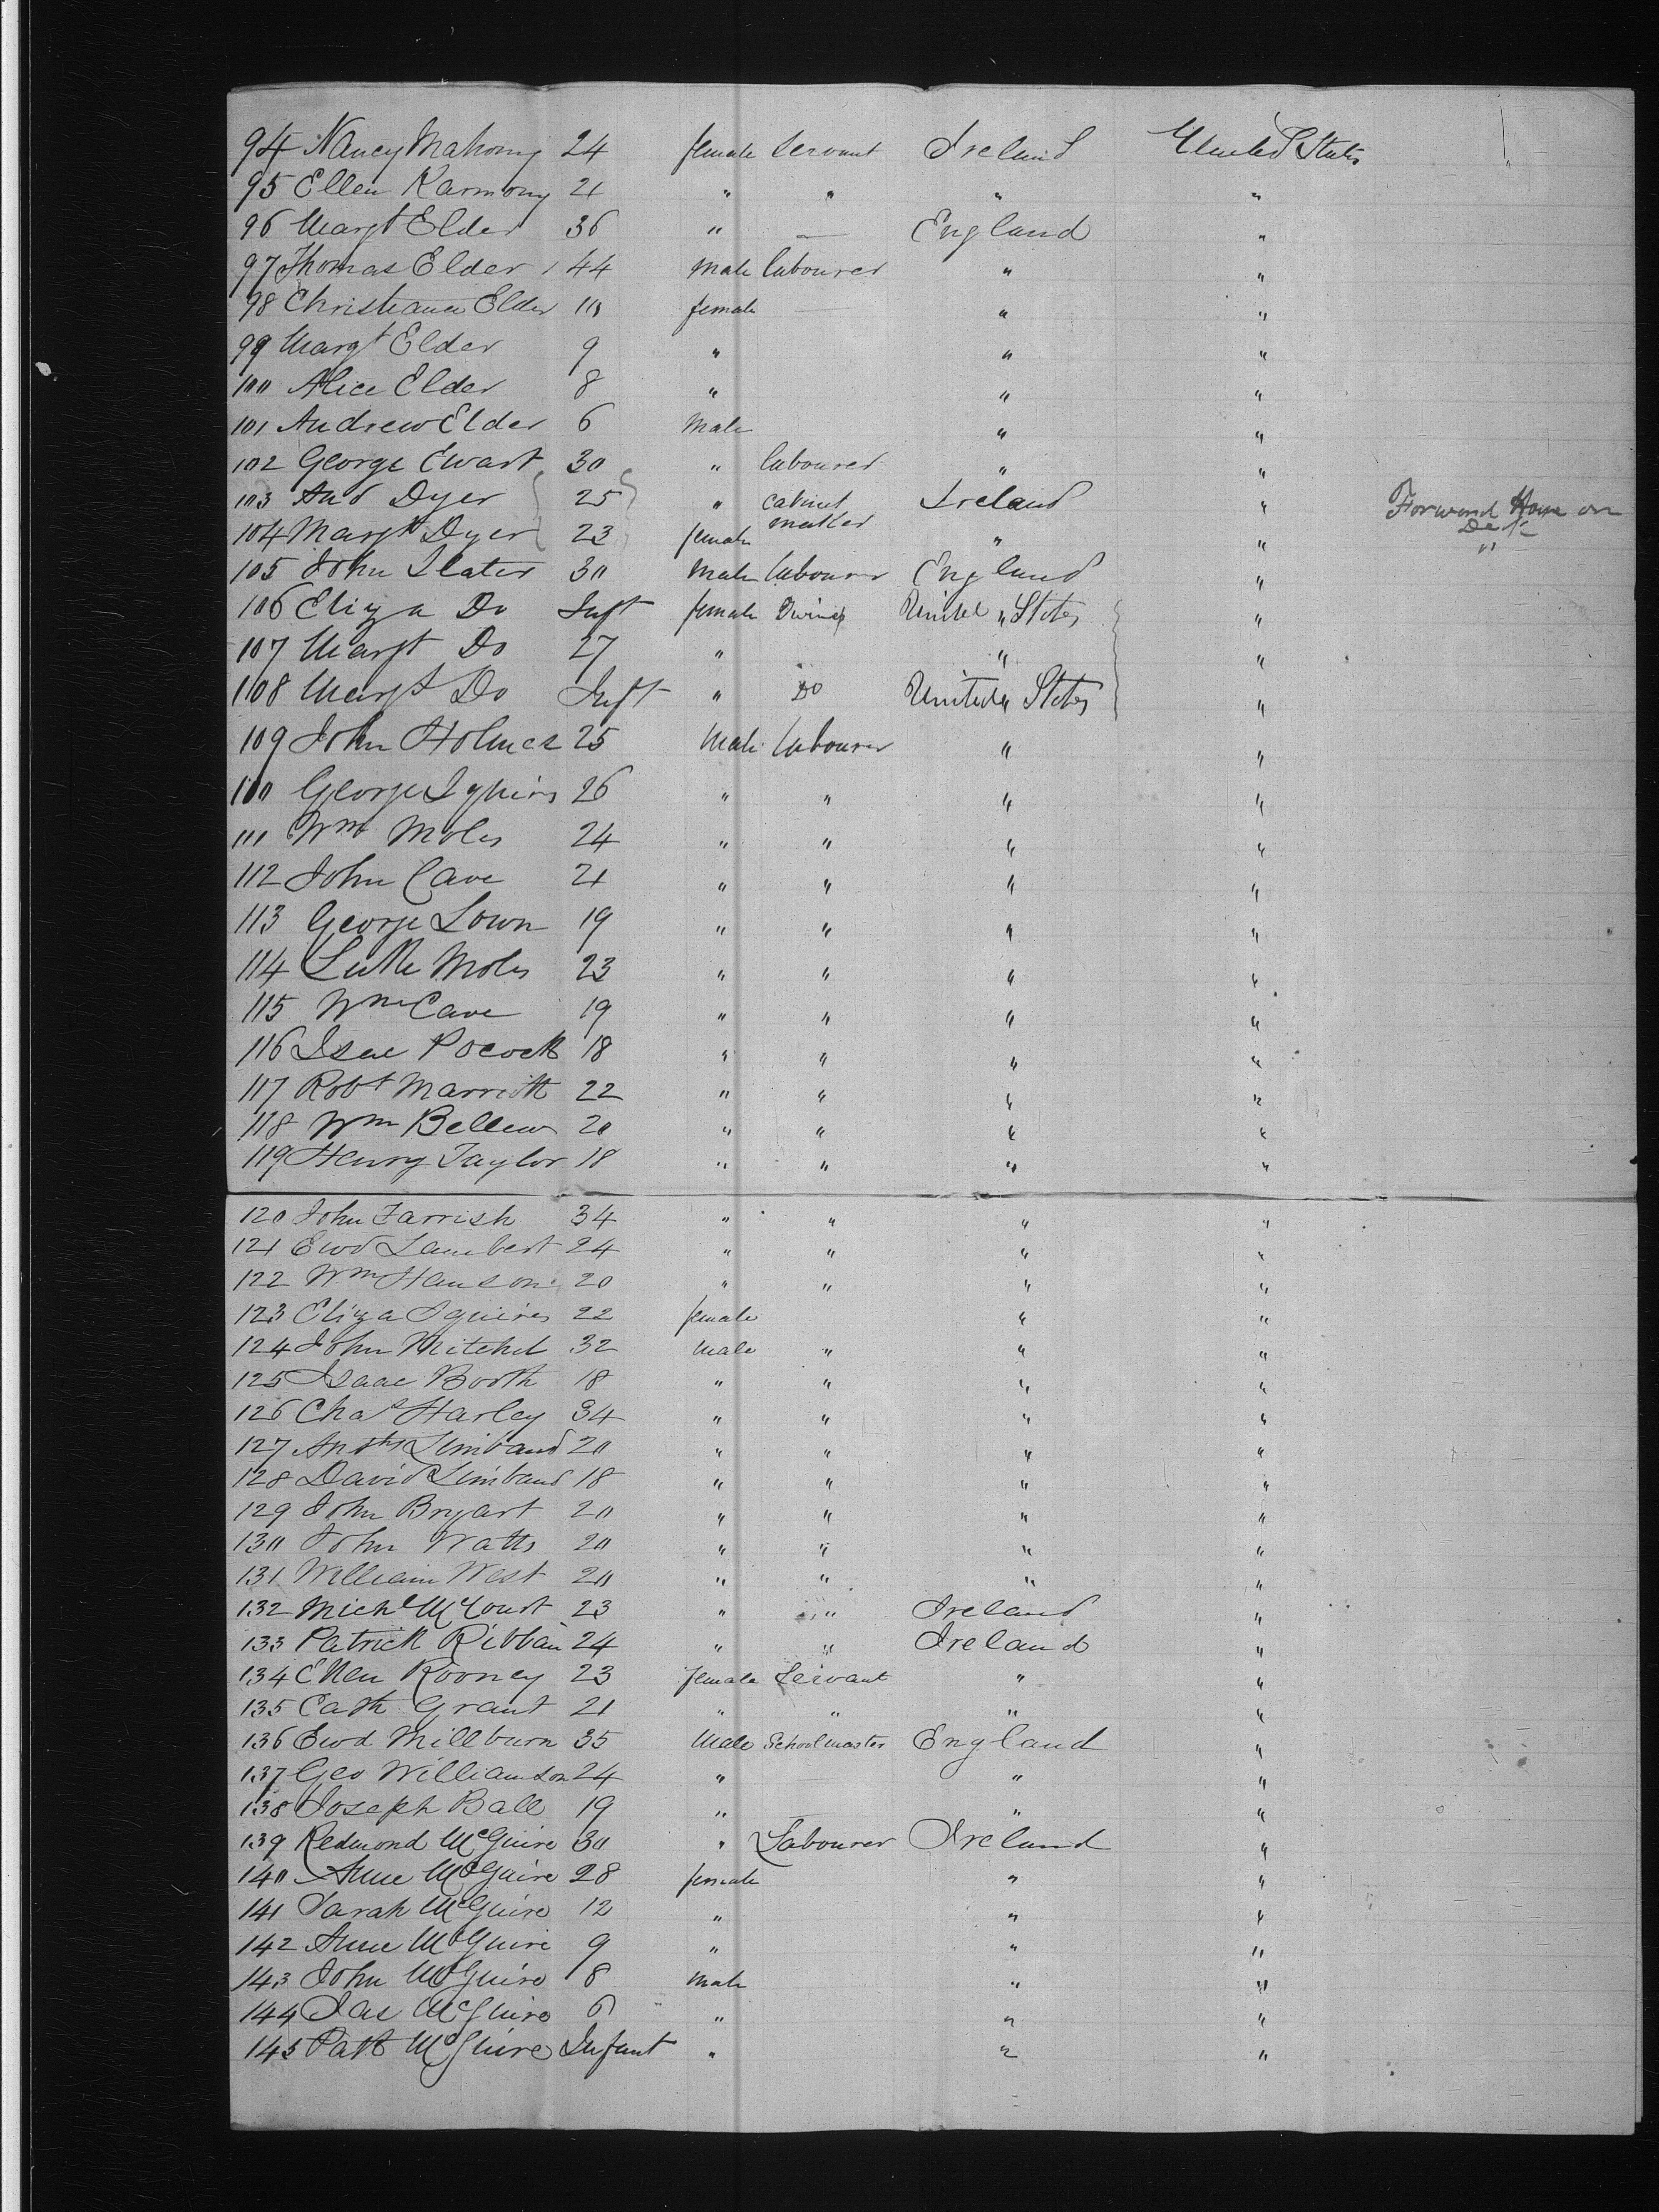 94 Nancy Mahony 24 female Servant Ireland United States
95 Ellen Karmony 21 " " " "
96 Margt Elder 36 " — England "
97 Thomas Elder 44 male labourer " "
98 Christiana Elder 10 female — " "
99 Margt Elder 9 " " "
100 Alice Elder 8 " " "
101 Andrew Elder 6 Male " "
102 George Ewart 30 " labourer " "
103 And Dyer 25 " cabinet maker Ireland " Forward House on Deck
104 Margt Dyer 23 female " " "
105 John Slater 30 male labourer England "
106 Eliza Do Inft female Twins United " States "
107 Margt Do 27 " " "
108 Margt Do Inft " Do United " States "
109 John Holmes 25 Male labourer " "
110 George Squires 26 " " " "
111 Wm Moles 24 " " " "
112 John Cave 21 " " " "
113 George Lown 19 " " " "
114 Luke Moles 23 " " " "
115 Wm Cave 19 " " " "
116 Isac Pocock 18 " " " "
117 Robt Marriott 22 " " " "
118 Wm Bellew 20 " " " "
119 Henry Taylor 18 " " " "
120 John Farrish 34 " " " "
121 Ewd Lambert 24 " " " "
122 Wm Hanson 20 " " " "
123 Eliza Squires 22 female " "
124 John Mitchel 32 male " " "
125 Isaac Booth 18 " " " "
126 Chas Harley 34 " " " "
127 Anthy Limbaud 20 " " " "
128 David Limbaud 18 " " " "
129 John Bryart 20 " " " "
130 John Watts 20 " " " "
131 William West 20 " " " "
132 Michl McCourt 23 " " Ireland "
133 Patrick Ribbain 24 " " Ireland "
134 Ellen Rooney 23 female Servant " "
135 Cath Grant 21 " " " "
136 Ewd Millburn 35 Male Schoolmaster England "
137 Geo Williamson 24 " — " "
138 Joseph Ball 19 " — " "
139 Redmond McGuire 30 " Labourer Ireland "
140 Anne McGuire 28 female " "
141 Sarah McGuire 12 " " "
142 Anne McGuire 9 " " "
143 John McGuire 8 male " "
144 Jas McGuire 6 " " "
145 Patk McGuire Infant " " "